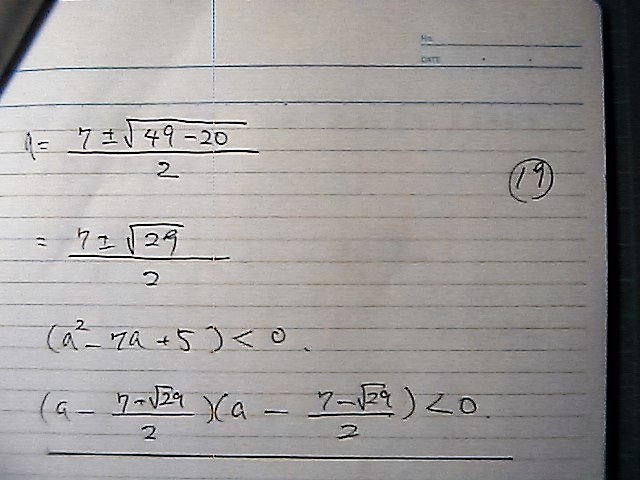 No.
DATE
a = \frac{7 \pm \sqrt{49 - 20}}{2}
(19)
= \frac{7 \pm \sqrt{29}}{2}
(a^2 - 7a + 5) < 0.
(a - \frac{7 + \sqrt{29}}{2})(a - \frac{7 - \sqrt{29}}{2}) < 0.